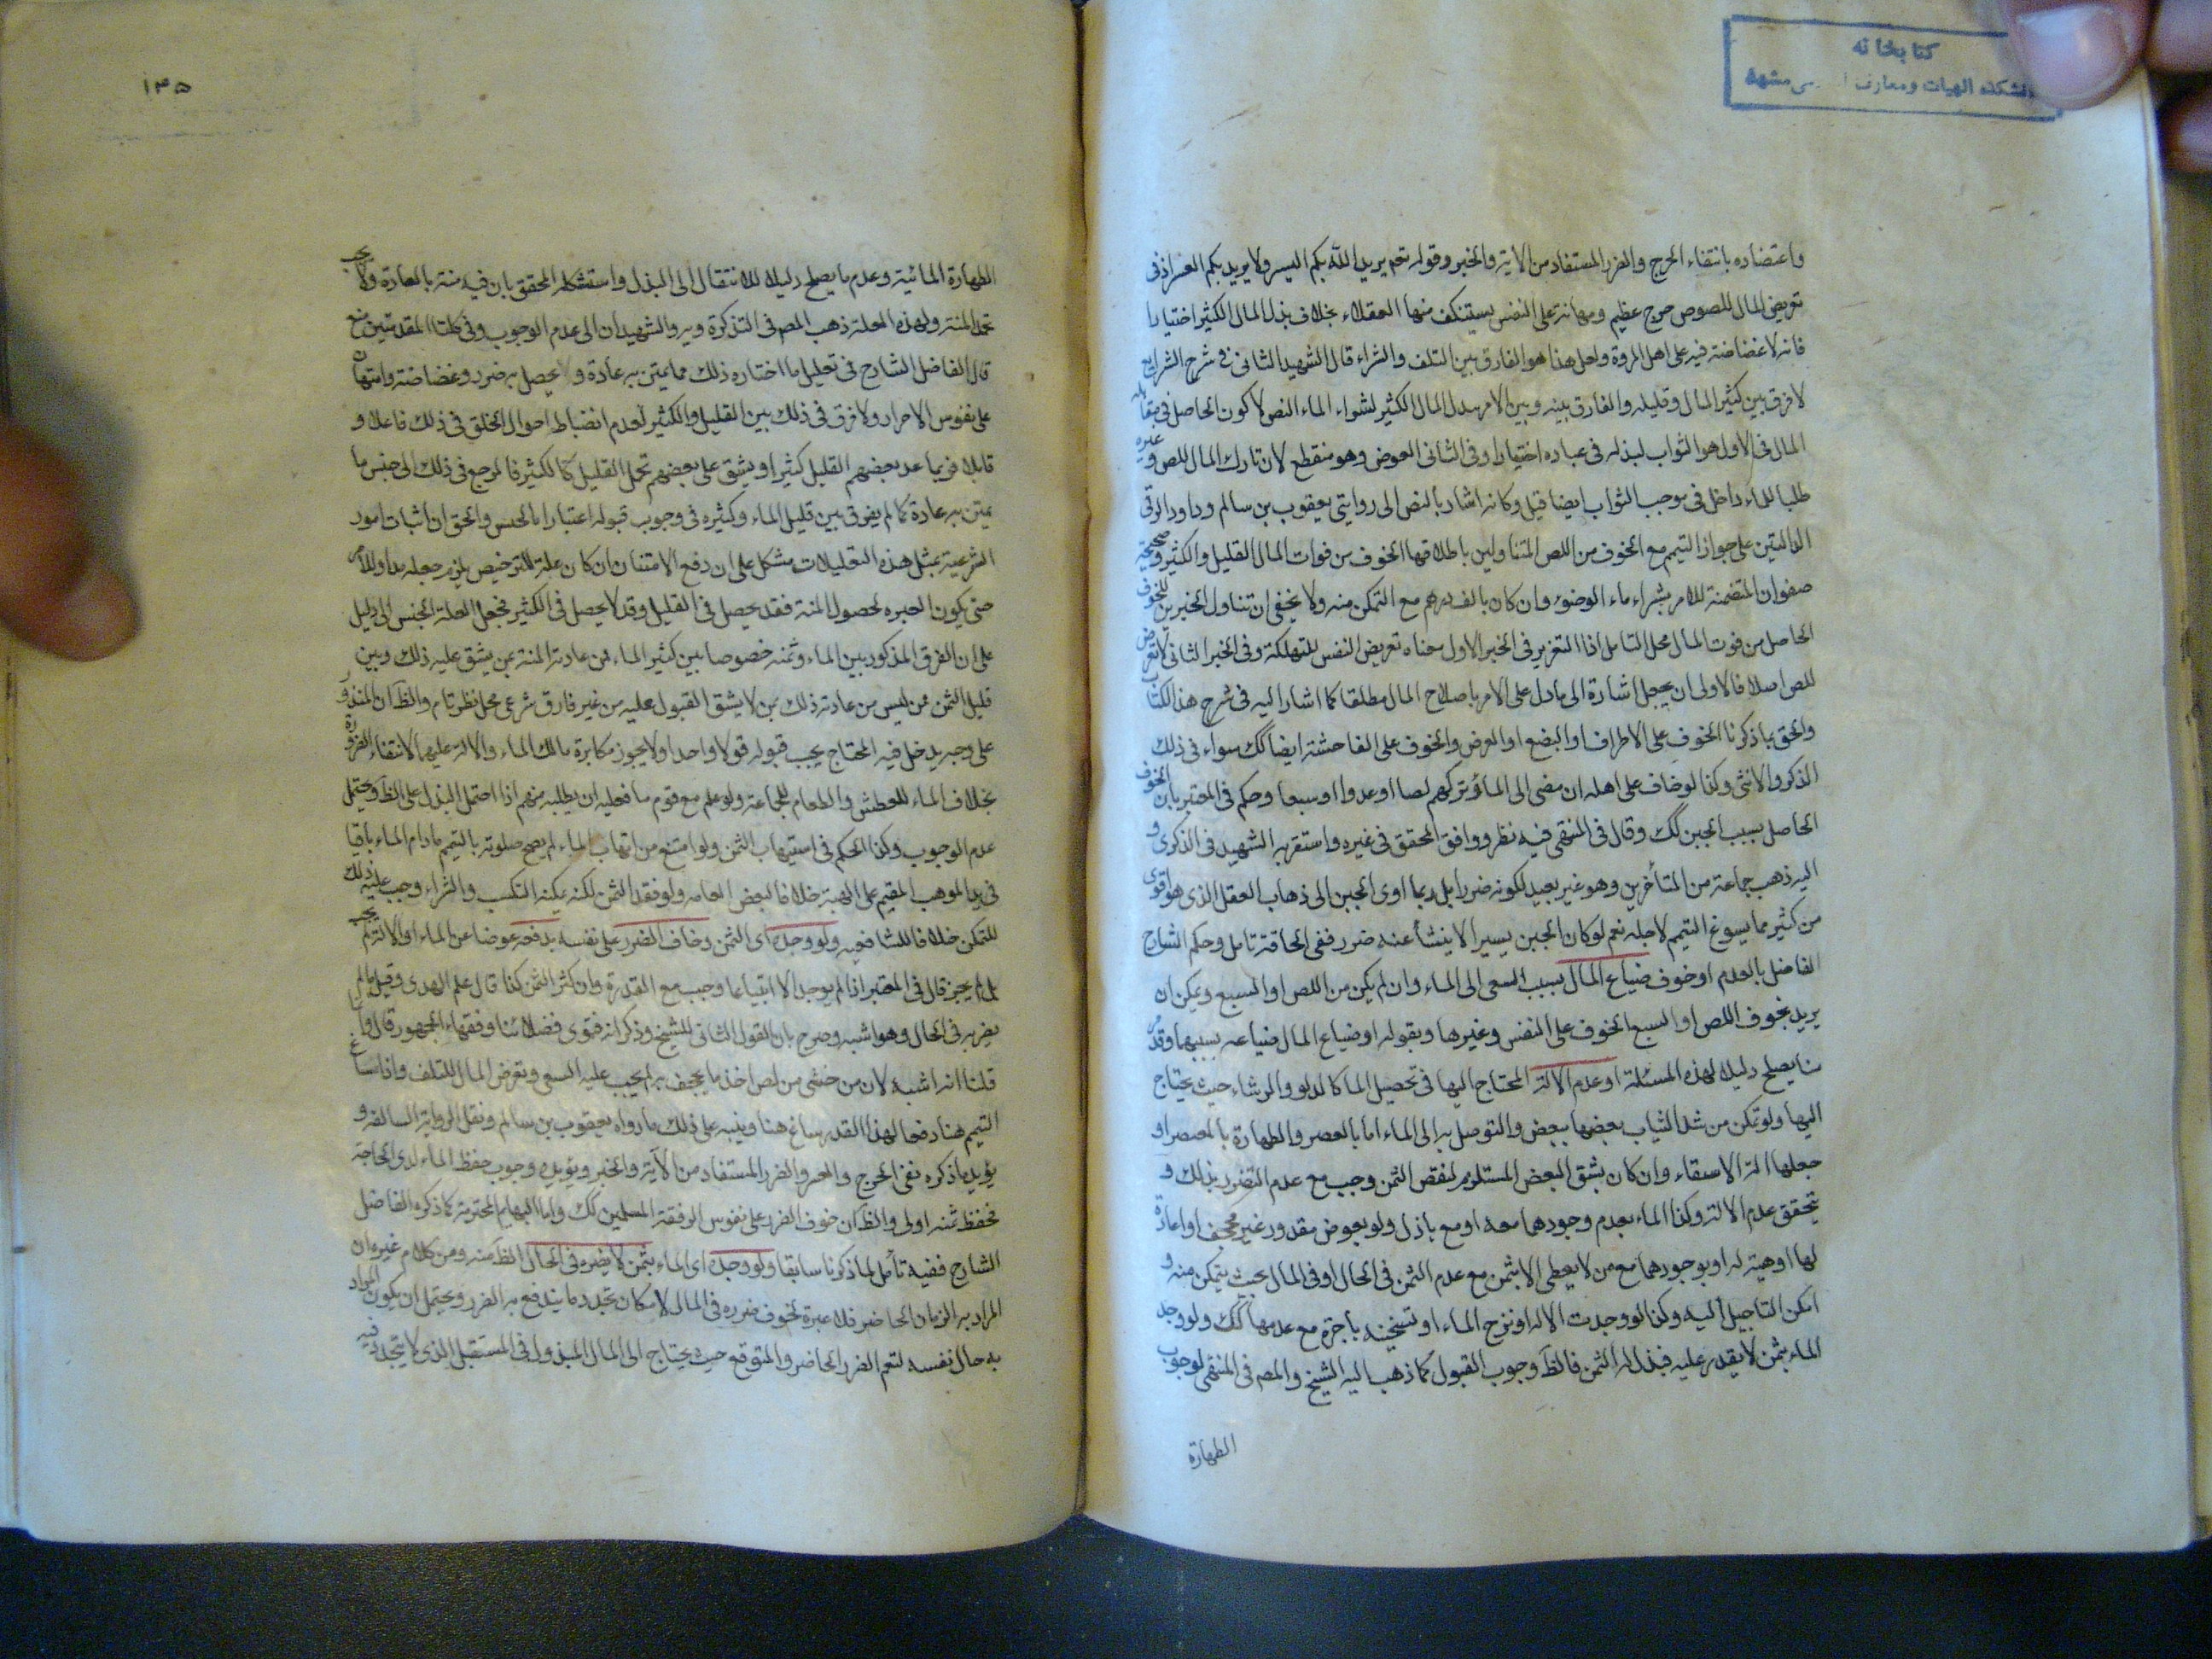 كتابخانه
دانشكده الهيات ومعارف اسلامى مشهد
واعتضاده بانتفاء الحرج والضرر المستفاد من الاية والخبر وقوله تعم يريد الله بكم اليسر ولا يريد بكم العسر اذ فى
تعريض المال للصوص حرج عظيم ومهانة على النفس يستنكف منها العقلاء بخلاف بذل المال الكثير اختيارا
فانه لا غضاضة فيه على اهل المروة ولعل هذا هو الفارق بين التلف والشراء قال الشهيد الثانى فى شرح الشرايع
لا فرق بين كثير المال وقليله والفارق بينه وبين الامر ببذل المال الكثير لشراء الماء النص لا كون الحاصل فى مقابلة
المال فى الاول هو الثواب لبذله فى عباده اختيارا وفى الثانى العوض وهو منقطع لان تارك المال للص وغيره
طلبا للماء داخل فى موجب الثواب ايضا قيل وكانه اشار بالنص الى روايتى يعقوب بن سالم وداود الرقى
الدالتين على جواز التيمم مع الخوف من اللص المتناولين باطلاقها الخوف من فوات المال القليل والكثير وصحيحة
صفوان المتضمنة للامر بشراء ماء الوضوء وان كان بالف درهم مع التمكن منه ولا يخفى ان تناول الخبرين للخوف
الحاصل من فوت المال محل التامل اذا التغرير فى الخبر الاول معناه تعريض النفس للتهلكة وفى الخبر الثانى لا تعرض
للص اصلا فالاولى ان يجعل اشارة الى ما دل على الامر باصلاح المال مطلقا كما اشار اليه فى شرح هذا الكتاب
والحق بما ذكرنا الخوف على الاطراف او البضع او العرض والخوف على الفاحشة ايضا كك سواء فى ذلك
الذكر والانثى وكذا لو خاف على اهله ان مضى الى الماء وتركهم لصا او عدوا او سبعا وحكم فى المعتبر بان الخوف
الحاصل بسبب الجبن كك وقال فى المنتهى فيه نظر ووافق المحقق فى غيره واستقربه الشهيد فى الذكرى و
اليه ذهب جماعة من المتأخرين وهو غير بعيد لكونه ضررا بل ربما ادى الجبن الى ذهاب العقل الذى هو اقوى
من كثير مما يسوغ التيمم لاجله نعم لو كان الجبن يسيرا لا ينشأ عنه ضرر ففى الحاقه تامل وحكم الشارح
الفاضل بالعدم او خوف ضياع المال بسبب السعى الى الماء وان لم يكن من اللص او السبع ويمكن ان
يريد بخوف اللص او السبع الخوف على النفس وغيرها وبقوله او ضياع المال ضياعه بسببهما وقد مر
منا يصلح دليلا لهذه المسئلة او عدم الالة المحتاج اليها فى تحصيل الما كالدلو والرشاء حيث يحتاج
اليها ولو تمكن من شد الثياب بعضها ببعض والتوصل به الى الماء اما بالعصر والطهارة بالمعصر او
جعلها الة الاستقاء وان كان بشق البعض المستلزم لنقص الثمن وجب مع عدم التضرر بذلك و
يتحقق عدم الالة وكذا الماء بعدم وجودهما معه او مع باذل ولو بعوض مقدور غير مجحف او اعارة
لها او هبة له او بوجودهما مع من لا يعطى الا بثمن مع عدم الثمن فى الحال او فى المال بحيث يتمكن منه و
امكن التاجيل اليه وكذا لو وجدت الالة او نزح الماء او تسخينه باجرة مع عدمها كك ولو وجد
الماء بثمن لا يقدر عليه فبذل له الثمن فالظ وجوب القبول كما ذهب اليه الشيخ والمص فى المنتهى لوجوب
الطهارة
١٣٥
الطهارة المائية وعدم ما يصلح دليلا للانتقال الى البدل واستشكله المحقق بان فيه منة بالعادة ولا يجب
تحمل المنة ولهذه العلة ذهب المص فى التذكرة وير والشهيدان الى عدم الوجوب وفى كلتا المقدمتين منع
قال الفاضل الشارح فى تعليل ما اختاره ذلك مما يمتن به عادة و يحصل به ضرر وغضاضة وامتهان
على نفوس الاحرار ولا فرق فى ذلك بين القليل والكثير لعدم انضباط احوال الخلق فى ذلك فاعلا و
قابلا فربما عد بعضهم القليل كثيرا ويشق على بعضهم تحمل القليل كالكثير فالمرجع فى ذلك الى جنس ما
يمتن به عادة كما لم يفرق بين قليل الماء وكثيره فى وجوب قبوله اعتبارا بالجنس والحق ان اثبات امور
الشرعية بمثل هذه التعليلات مشكل على ان دفع الامتنان ان كان علة للترخيص يلزم جعله مدار الامر
حتى يكون العبرة لحصول المنة فقد يحصل فى القليل وقد لا يحصل فى الكثير فجعل العلة الجنس الى دليل
على ان الفرق المذكور بين الماء وثمنه خصوصا بين كثير الماء من عادته المنة بمن يشق عليه ذلك وبين
قليل الثمن ممن ليس من عادته ذلك بمن لا يشق القبول عليه من غير فارق شرعى محل نظر تام والظ ان المنذور
على وجه يدخل فيه المحتاج يجب قبوله قولا واحدا ولا يجوز مكابرة مالك الماء والالة عليهما لانتفاء الضرورة
بخلاف الماء للعطش والطعام للمجاعة ولو علم مع قوم ما فعليه ان يطلبه منهم اذا احتمل البذل على الظ ويحتمل
عدم الوجوب وكذا الحكم فى استيهاب الثمن ولو امتنع من اتهاب الماء لم يصح صلوته بالتيمم ما دام الماء باقيا
فى يد الموهب المقيم على الهبة خلافا لبعض العامه ولو فقد الثمن لكنه يمكنه التكسب والشراء وجب عليه ذلك
للتمكن خلافا للشافعيه ولو وجده اى الثمن وخاف الضرر على نفسه بدفعه عوضا عن الماء او الالة لم يجب
بل لم يجز قال فى المعتبر اذا لم يوجد الا ابتياعا وجب مع القدرة وان كثر الثمن كذا قال علم الهدى وقيل ما لم
يضر به فى الحال وهو اشبه وصرح بان القول الثانى للشيخ وذكر انه فتوى فضلائنا وفقهاء الجمهور قال وانما
قلنا انه اشبه لان من خشى من لص اخذ ما يجحف به لم يجب عليه السعى وتعرض المال للتلف واذا ساغ
التيمم هناك دفعا لهذا القدر ساغ هنا وينبه على ذلك ما رواه يعقوب بن سالم ونقل الرواية السالفة و
يؤيد ما ذكره نفى الحرج والعسر والضرر المستفاد من الآية والخبر ويؤيده وجوب حفظ الماء لدى الحاجة
فحفظ ثمنه اولى والظ ان خوف الضرر على نفوس الرفقة المسلمين كك واما البهايم المحترمة كما ذكره الفاضل
الشارح ففيه تأمل لما ذكرنا سابقا ولو وجده اى الماء بثمن لا يضره فى الحال الظ منه ومن كلام غيره ان
المراد به الزمان الحاضر فلا عبرة لخوف ضرره فى المال لامكان تجدد ما يندفع به الضرر ويحتمل ان يكون المراد
به حال نفسه لتعم الضرر الحاضر والمتوقع حيث يحتاج الى المال المبذول فى المستقبل الذى لا يتجدد فيه